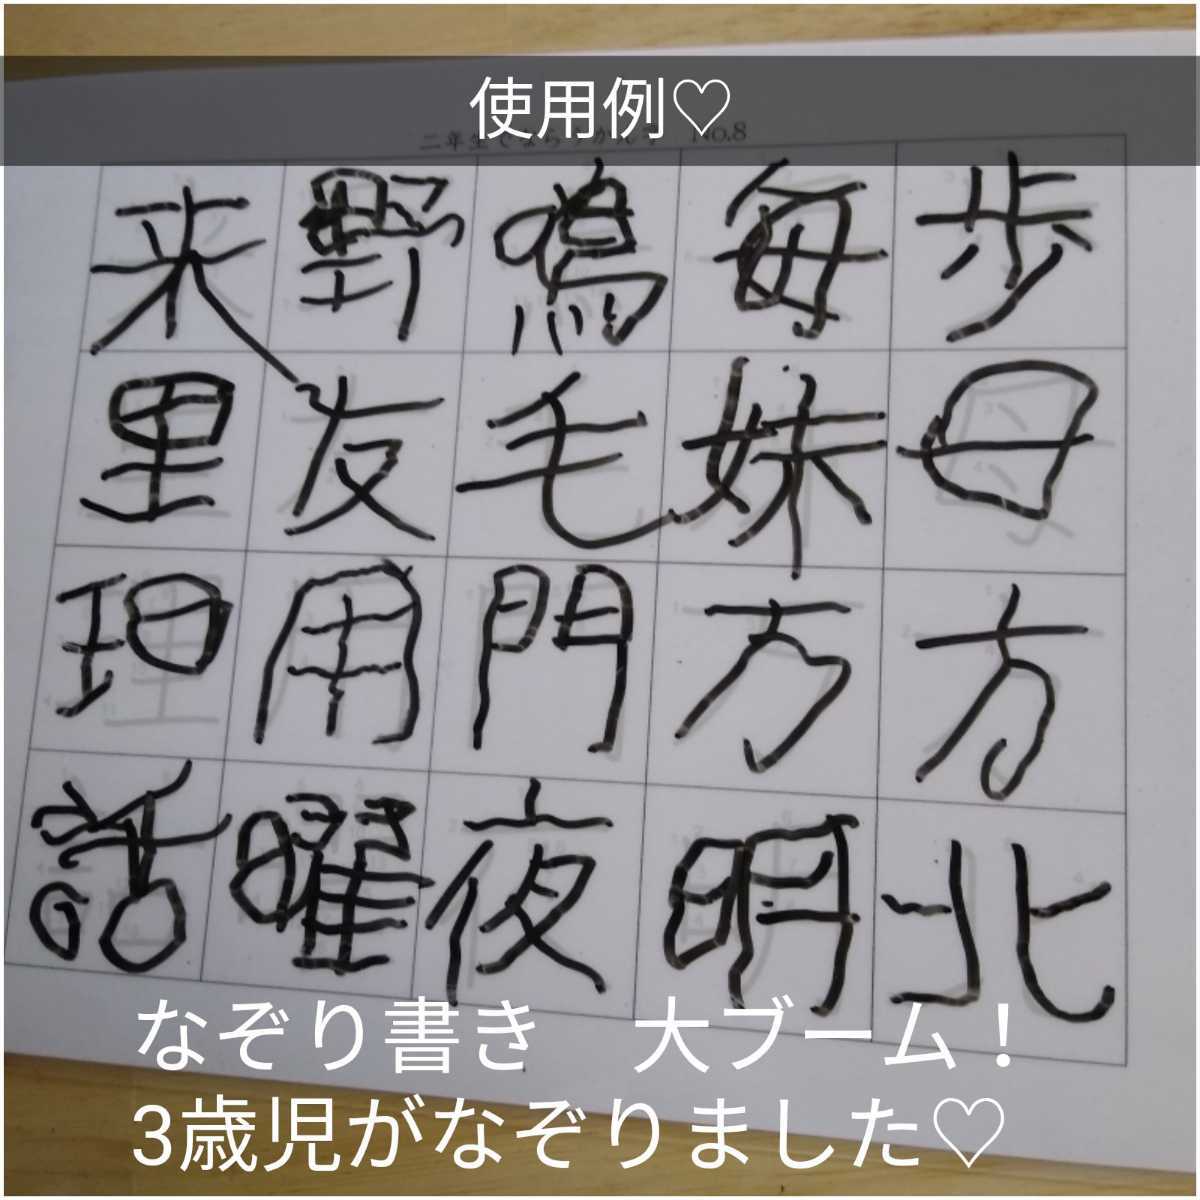 使用例♡
二年生でならうかん字 No.8
歩母方北
毎妹万明
鳴毛門夜
野友用曜
来里理話
なぞり書き 大ブーム！
3歳児がなぞりました♡